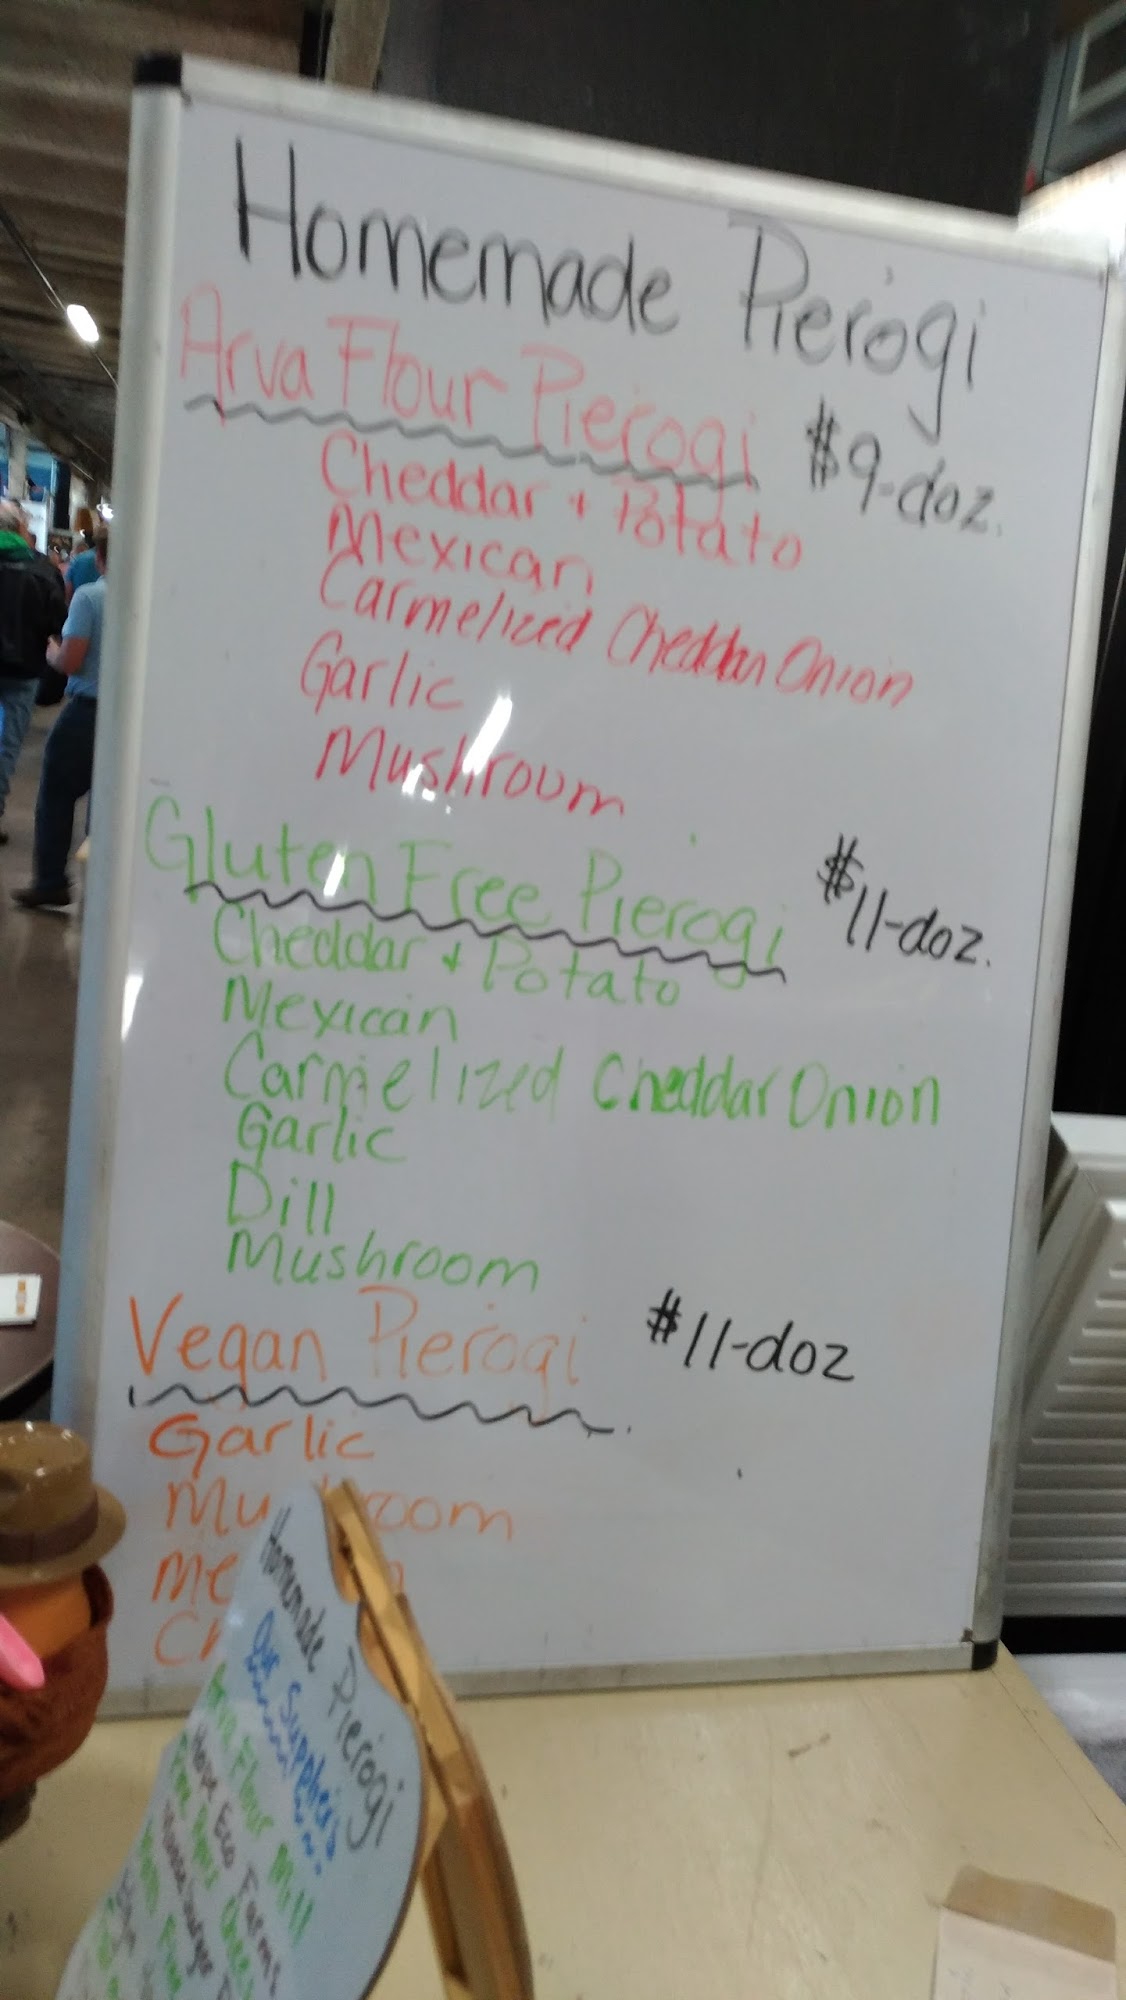 Homemade Pierogi
Arva Flour Pierogi $9-doz.
Cheddar + Potato
Mexican
Carmelized Cheddar Onion
Garlic
Mushroom
Gluten Free Pierogi $11-doz.
Cheddar + Potato
Mexican
Carmelized Cheddar Onion
Garlic
Dill
Mushroom
Vegan Pierogi $11-doz
Garlic
Homemade Pierogi
Our Suppliers
Arva Flour Mill
Hope Eco Farms